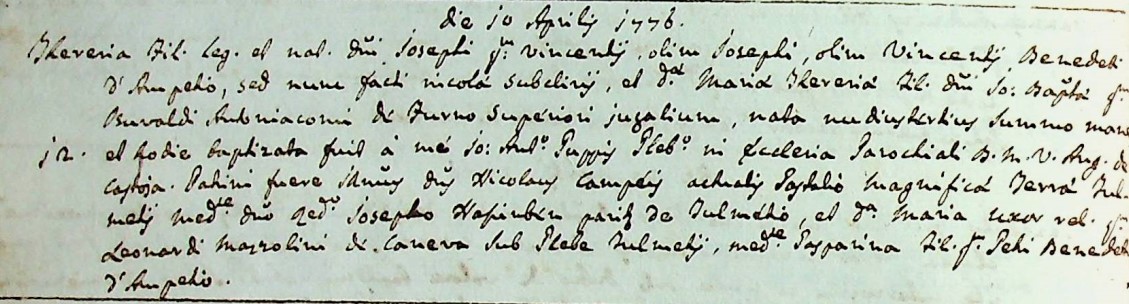 die 10 Aprilis 1776.
Thereria fil. leg. et nat. dñi Josephi qm Vincentij, olim Josephi, olim Vincentij Benedeti
d'Ampeho, sed nunc facti incolæ Subclivij, et dæ Mariæ Thereriæ fil. dñi Jo: Baptæ qm
Buvaldi Antoniacomi de Furno Superiori jugalium, nata nudiustertius summo mane
12. et hodie baptizata fuit à mé Jo: Antº Pleb.º in Ecclesia Parochiali B. M. V. Ang. de
Castoja. Patrini fuere dñs Nicolaus actualis Gastaldio Magnificæ Terræ Tul-
metij medte dño Josepho pariter de Tulmetio, et da Maria uxor rel. qm
Leonardi Mazzolini de Caneva sub Plebe Tulmetij, medte Gasparina fil. qm Petri Benedeti
d'Ampeho.